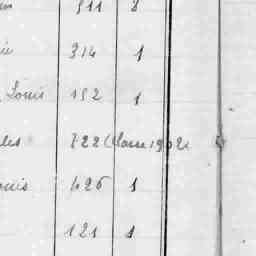 311 8
314 1
Louis 152 1
les 722 (Classe 1902
ouis 426 1
121 1